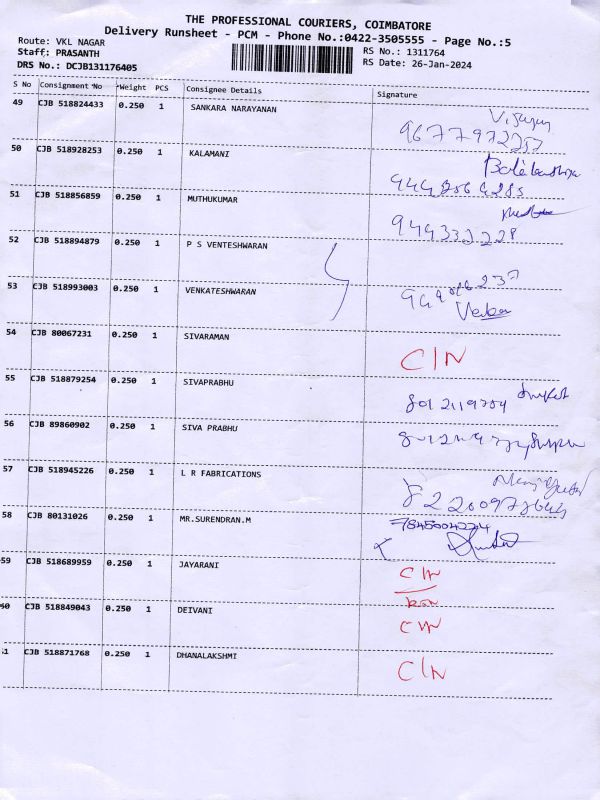 THE PROFESSIONAL COURIERS, COIMBATORE
Delivery Runsheet - PCM - Phone No.:0422-3505555 - Page No.:5
Route: VKL NAGAR
RS No.: 1311764
Staff: PRASANTH
RS Date: 26-Jan-2024
DRS No.: DCJB131176405
S No Consignment No Weight PCS Consignee Details Signature
49 CJB 518824433 0.250 1 SANKARA NARAYANAN
50 CJB 518928253 0.250 1 KALAMANI
51 CJB 518856859 0.250 1 MUTHUKUMAR
52 CJB 518894879 0.250 1 P S VENTESHWARAN
53 CJB 518993003 0.250 1 VENKATESHWARAN
54 CJB 80067231 0.250 1 SIVARAMAN C/N
55 CJB 518879254 0.250 1 SIVAPRABHU
56 CJB 89860902 0.250 1 SIVA PRABHU
57 CJB 518945226 0.250 1 L R FABRICATIONS
58 CJB 80131026 0.250 1 MR.SURENDRAN.M
59 CJB 518689959 0.250 1 JAYARANI C/N
60 CJB 518849043 0.250 1 DEIVANI C/N
61 CJB 518871768 0.250 1 DHANALAKSHMI C/N